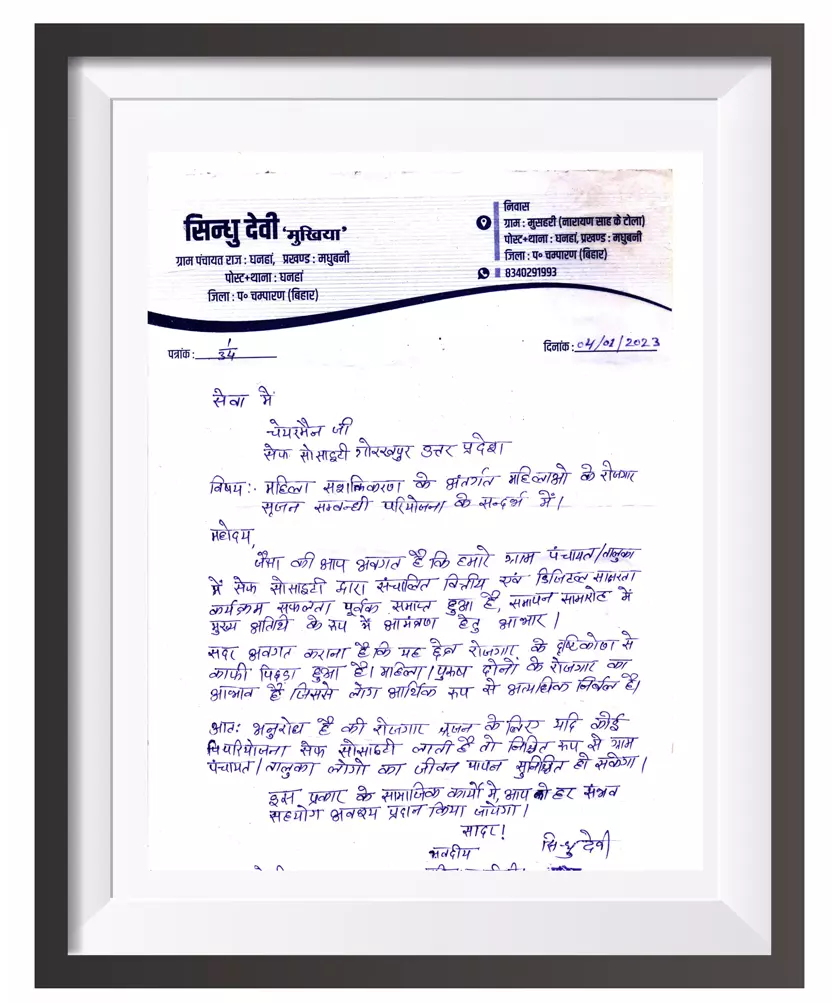 सिन्धु देवी 'मुखिया'
ग्राम पंचायत राज : घनहां, प्रखण्ड : मधुबनी
पोस्ट+थाना : घनहां
जिला : प० चम्पारण (बिहार)
निवास
ग्राम : मुसहरी (नारायण साह के टोला)
पोस्ट+थाना : घनहां, प्रखण्ड : मधुबनी
जिला : प० चम्पारण (बिहार)
8340291993
पत्रांक : 1/34
दिनांक : 04/01/2023
सेवा में
चेयरमैन जी
सेफ सोसाइटी गोरखपुर उत्तर प्रदेश।
विषय:- महिला सशक्तिकरण के अंतर्गत महिलाओ के रोजगार
सृजन सम्बन्धी परियोजना के सन्दर्भ में।
महोदय,
जैसा की आप अवगत है कि हमारे ग्राम पंचायत/तालुका
में सेफ सोसाइटी द्वारा संचालित वित्तीय एवं डिजिटल साक्षरता
कार्यक्रम सफलता पूर्वक समाप्त हुआ है, समापन सामारोह में
मुख्य अतिथि के रूप में आमंत्रण हेतु आभार।
सदर अवगत कराना है कि यह क्षेत्र रोजगार के दृष्टिकोण से
काफी पिछड़ा हुआ है। महिला/पुरुष दोनों के रोजगार का
आभाव है जिससे लोग आर्थिक रूप से अत्यधिक निर्बल है।
अतः अनुरोध है की रोजगार सृजन के लिए यदि कोई
परियोजना सेफ सोसाइटी लाती है तो निश्चित रूप से ग्राम
पंचायत/तालुका लोगो का जीवन यापन सुनिश्चित हो सकेगा।
इस प्रकार के सामाजिक कार्यो में, आप को हर संभव
सहयोग अवश्य प्रदान किया जायेगा।
सादर!
भवदीय
सिन्धु देवी